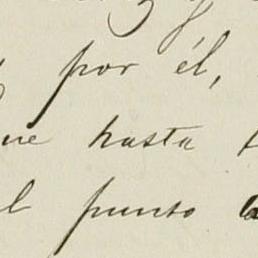 por él,
ue hasta
el punto